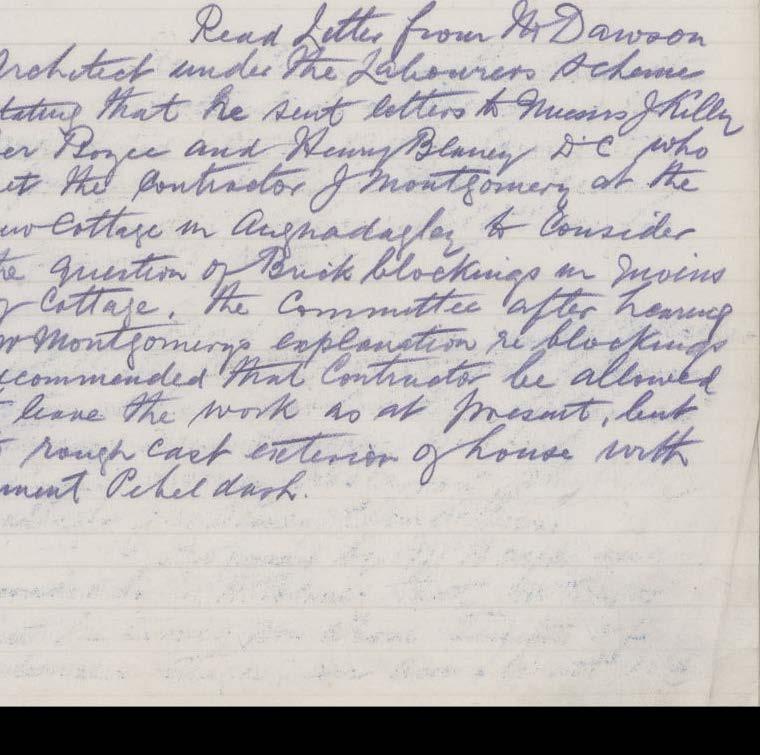 Read Letter from Mr Dawson
Architect under the Labourers Scheme
tating that he sent letters to Messrs J Killy
er Boyce and Henry Blaney D.C who
et the Contractor J Montgomery at the
ew Cottage in Aughadaglay to Consider
he question of Brick blockings in
y Cottage. The Committee after hearing
Mr Montgomerys explanation re blockings
ecommended that Contractor be allowed
leave the work as at present, but
rough cast exterior of house with
ement Pebel dash.